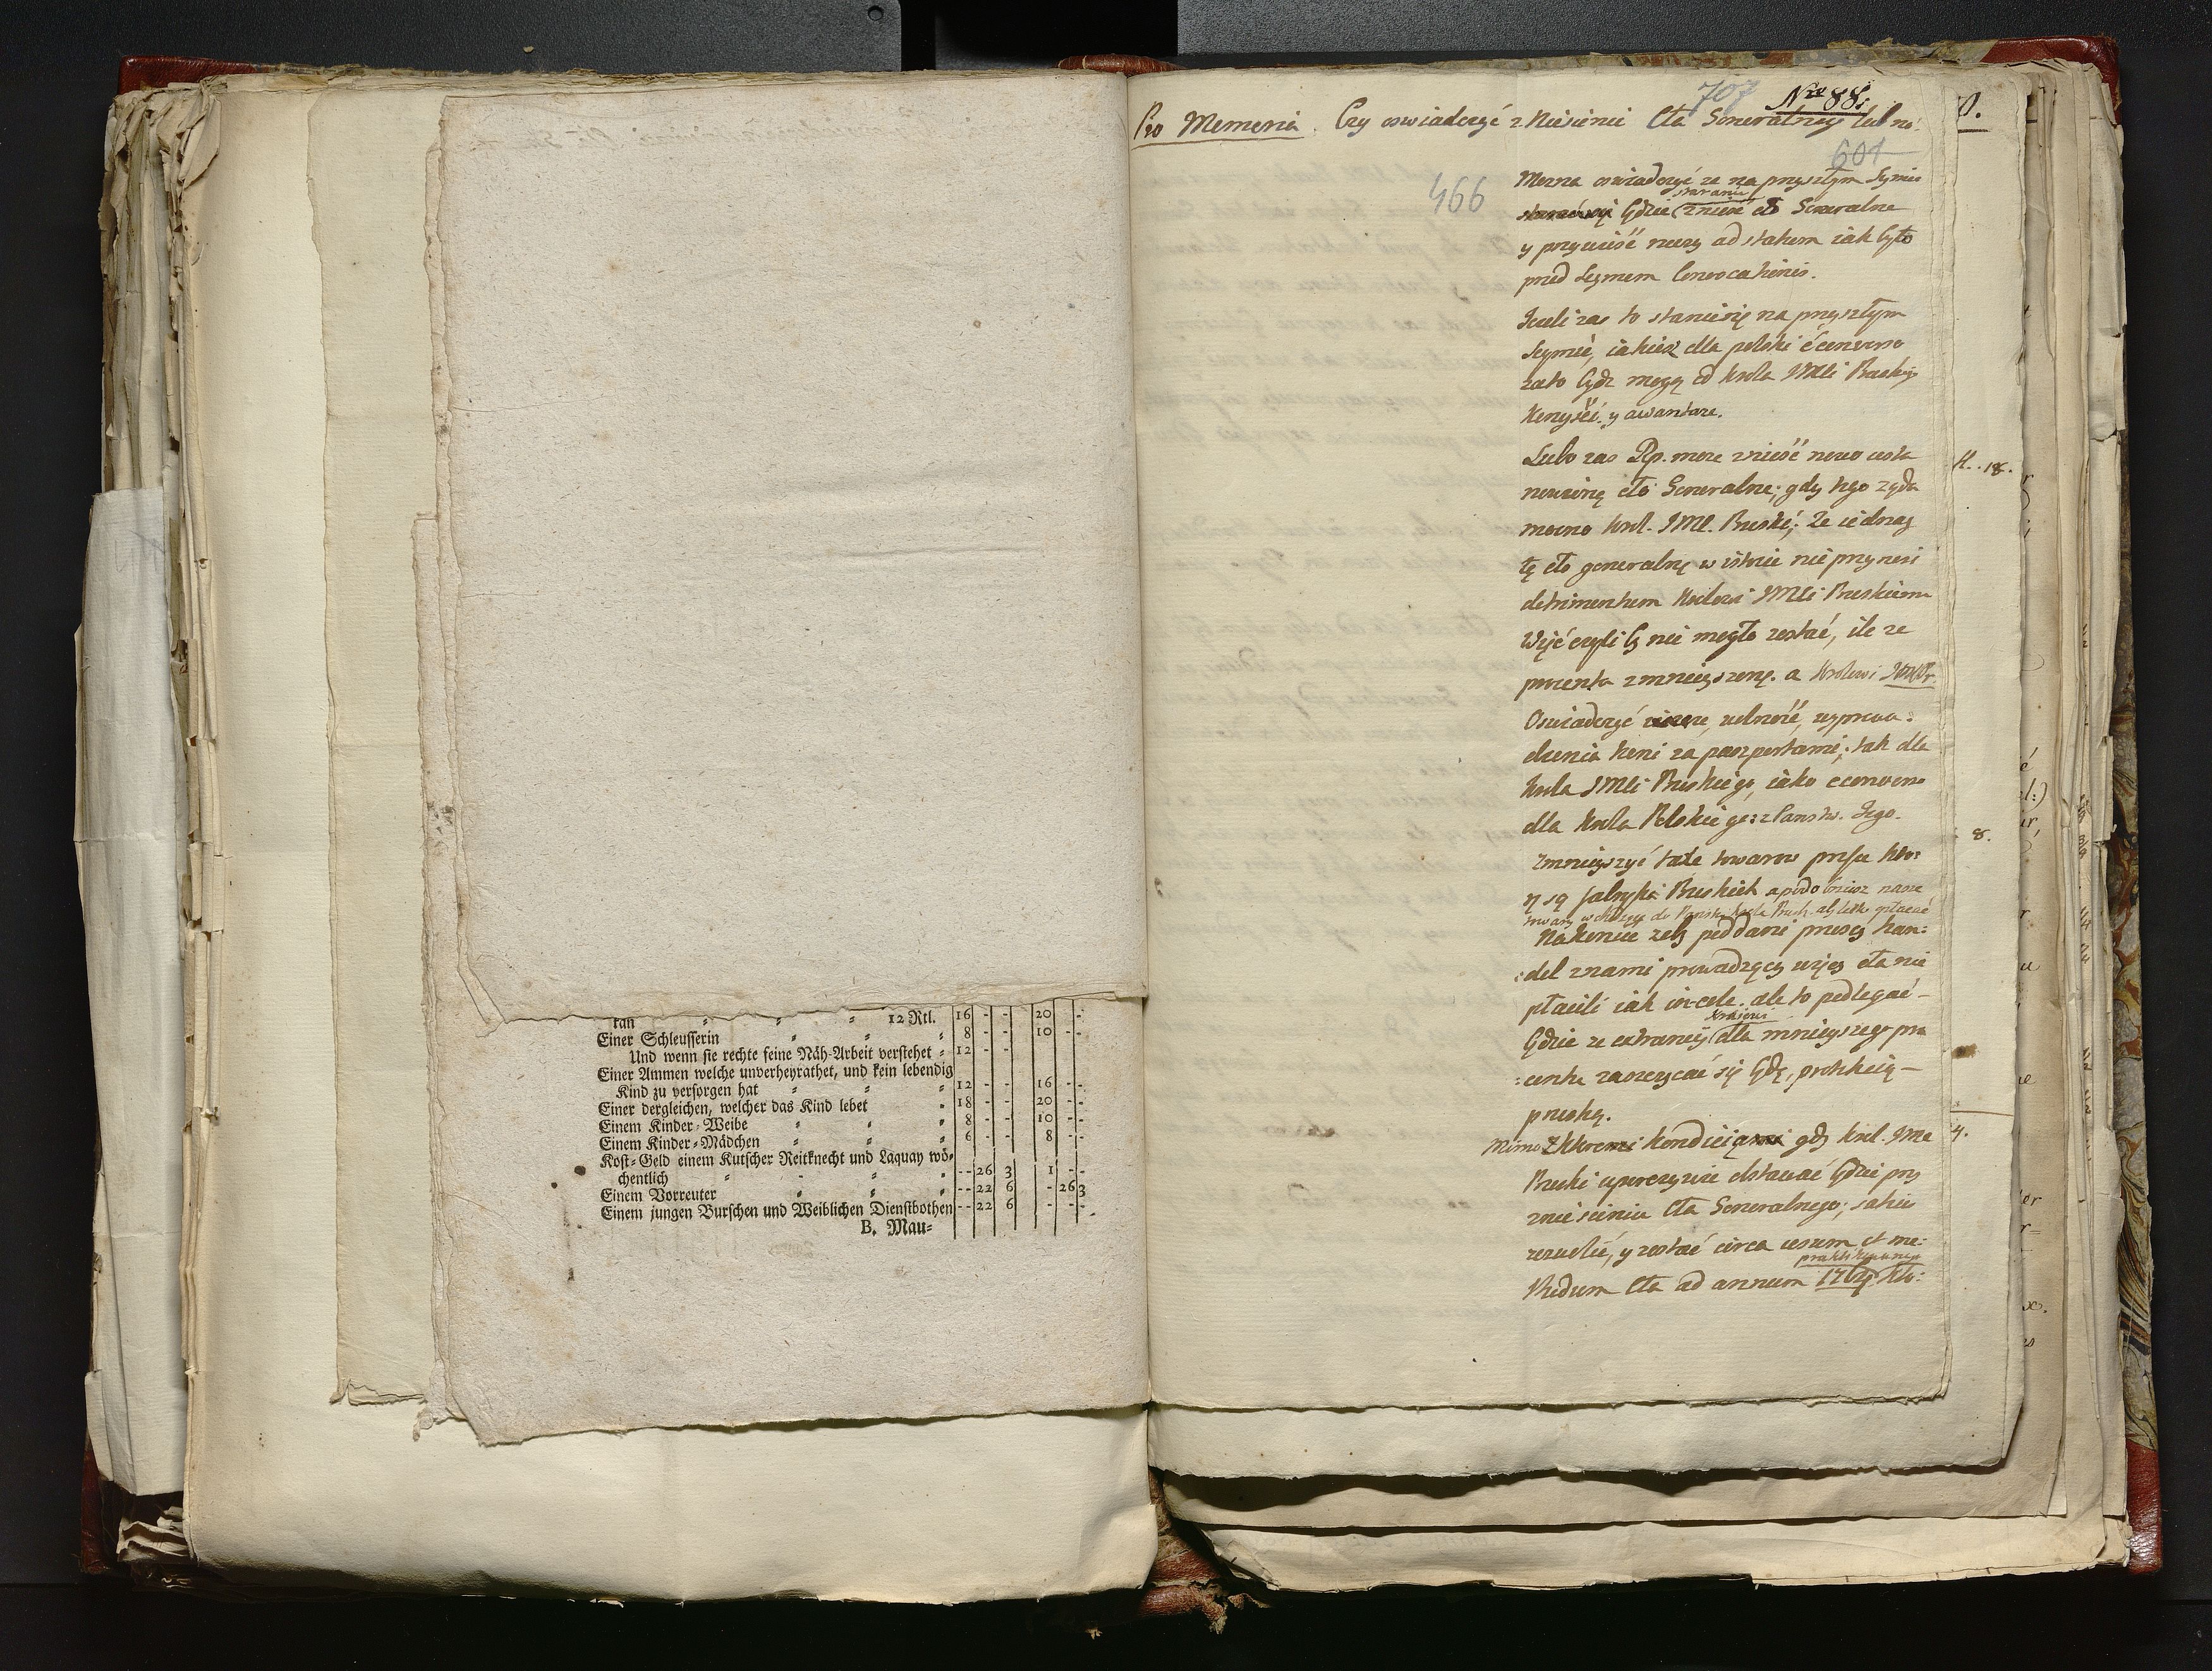 tan 12 Rtl. 16 - - 20 - -
Einer Schleusserin 8 - - 10 - -
Und wenn sie rechte feine Näh-Arbeit verstehet 12 - -
Einer Ammen welche unverheyrathet, und kein lebendig
Kind zu versorgen hat 12 - - 16 - -
Einer dergleichen, welcher das Kind lebet 18 - - 20 - -
Einem Kinder-Weibe 8 - - 10 - -
Einem Kinder-Mädchen 6 - - 8 - -
Kost-Geld einem Kutscher Reitknecht und Laquay wö-
chentlich - 26 3 1 - -
Einem Vorreuter - 22 6 - 26 3
Einem jungen Burschen und Weiblichen Dienstbothen - 22 6 - - -
B. Mau-
707 Nro 88.
Pro Memoria. Czy oswiadczyć zniesienie Cła Generalnego lub nie
601
466
Mozna oswiadczyć ze na przyszłym Seymie
staranie
będzie znieść cło Generalne
y przywieść rzeczy ad statum iak było
przed Seymem Convocationis.
Jezeli zas to stanie się na przyszłym
Seymie, iakiesz dla polski é converso
zato bydz mogą od Krola JMCi Pruskiego
Korzyści y awantaze.
Lubo zas Rp. moze znieść nowo usta
nowione cło Generalne; gdy tego ząda
mocno Krol. JMC. Pruski; Ze iednag
te cło generalne w istocie nie przynosi
detrimentum Krolowi JMCi Pruskiemu
Więc czyli by nie mogło zostać, ile ze
procenta zmnieyszone. a Krolowi
Oswiadczyć wolność, wyprowa:
dzenia Koni za paszportami; tak dla
Krola JMCi Pruskiego, iako econverso
dla Krola Polskiego: z Panstw. Jego.
Zmnieyszyć taxe towarow
są fabryki Pruskich a podobniesz nasze
towary wchodzące do Panstw Krola Prusk. aby lekko opłacać
Nakoniec zeby poddani pruscy han:
:del znami prowadzący więcey cła nie
płacili iak in-cele. ale to podlegać
będzie ze extranei dla mnieyszego pro
:centu zaszczycać się będą, protekcią
pruską.
Mimo kondicią gdy Krol. JMC
Pruski uporczywie obstawać będzie przy
zniesieniu Cła Generalnego;
y zostać circa usum et me:
praktikowaney
thodum Cła ad annum 1764 kto: